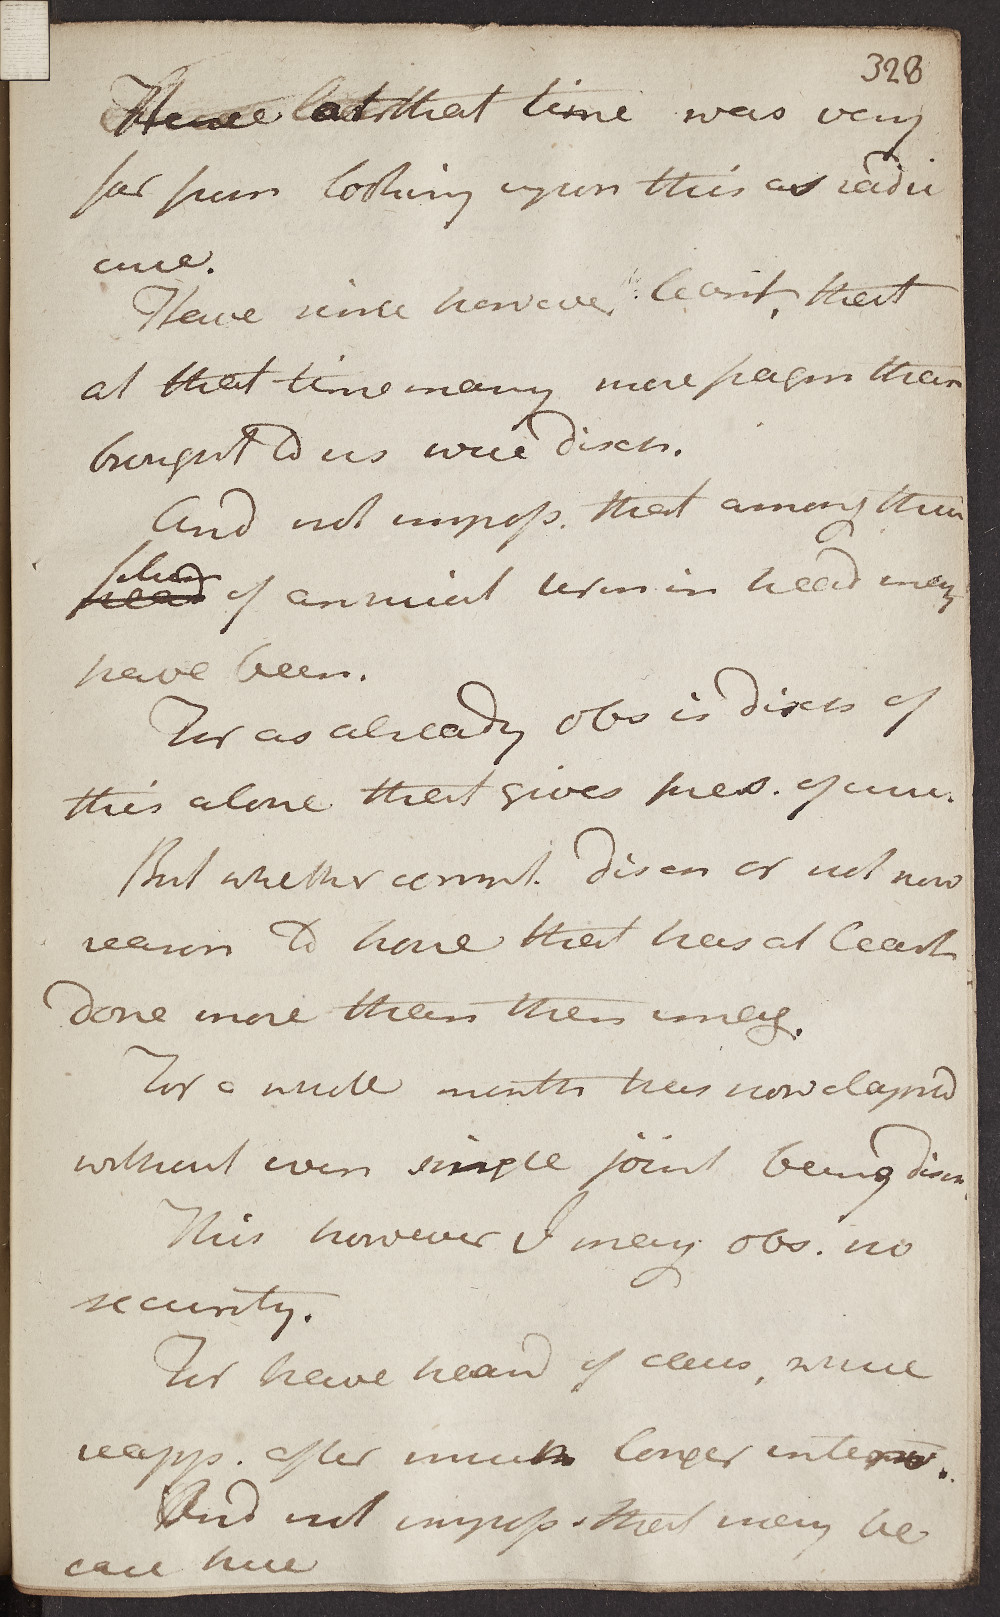 328
at that time was very
far from looking upon this as radi
cure.
Have since however learnt, that
at that time many more pages than
brought to us were disch.
And not imposs. that among them
of animal worm in head may
have been.
For as already obs is disch of
this alone that gives pres. of cure.
But whether disch or not now
reason to hope that has at least
done more than then imag.
For a whole month has now elapsed
without even single joint being disch.
This however I may obs. no
security.
For have heard of cases, where
reapp. after much longer interv.
And not imposs. that may be
case here